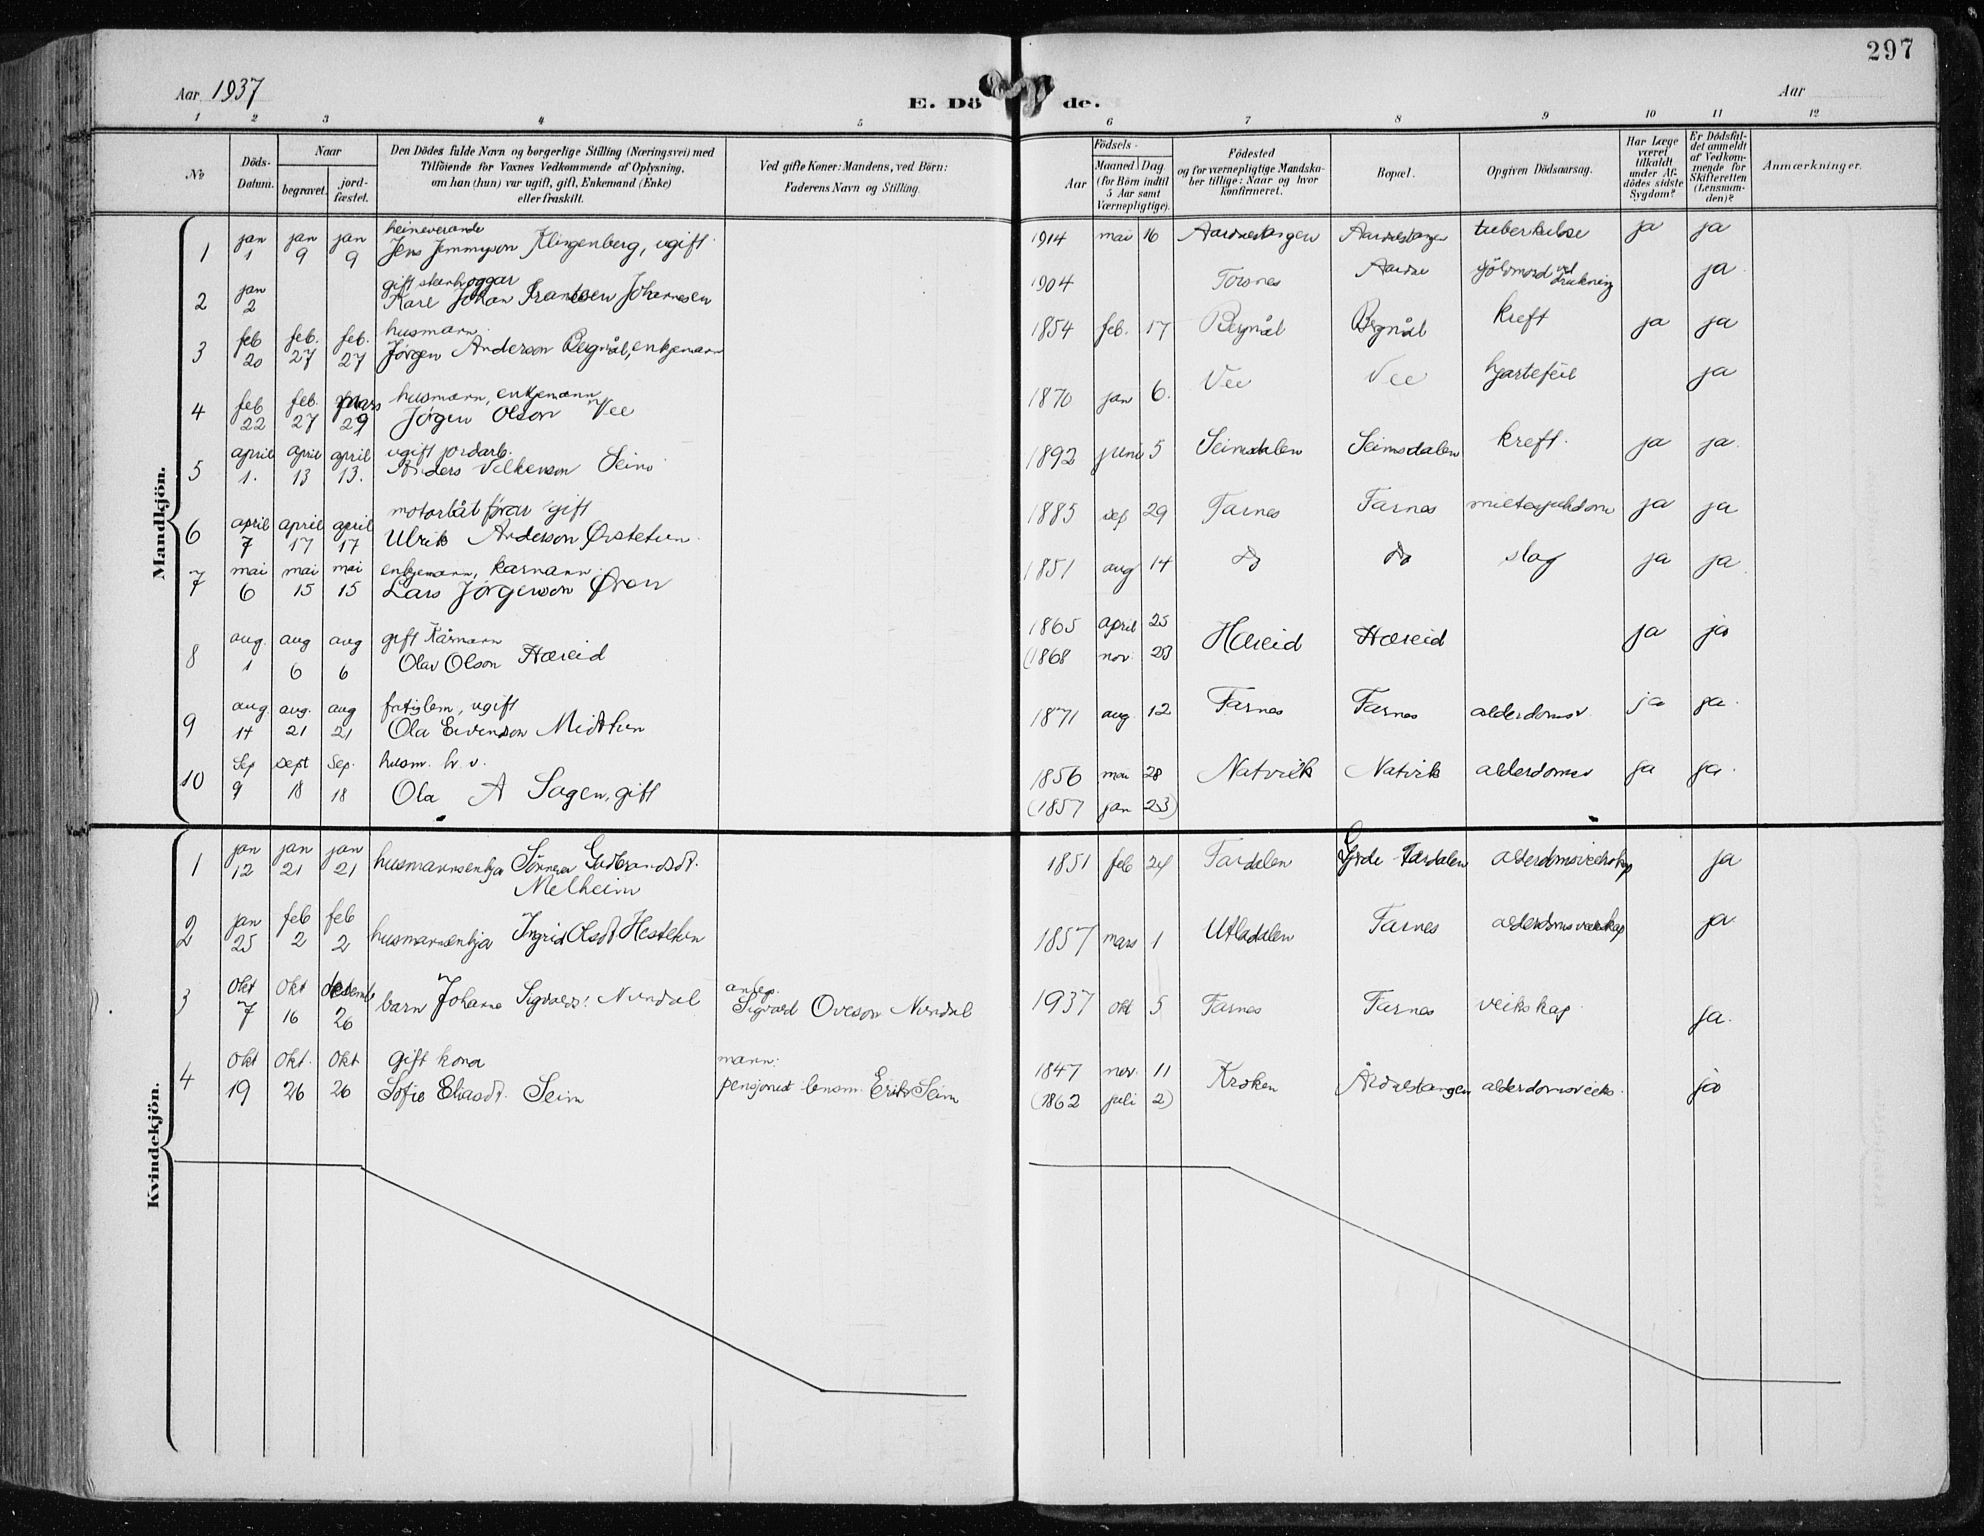 297
Aar 1937
E. Dö de.
Aar
1 2 3 4 5 6 7 8 9 10 11 12
No
Döds-Datum.
Naar
begravet.
jord-fæstet.
Den Dödes fulde Navn og borgerlige Stilling (Næringsvei) med
Tilföiende for Voxnes Vedkommende af Oplysning,
om han (hun) var ugift, gift, Enkemand (Enke)
eller fraskilt.
Ved gifte Koner: Mandens, ved Börn:
Faderens Navn og Stilling.
Födsels-
Aar
Maaned Dag
(for Börn indtil
5 Aar samt
Værnepligtige).
Födested
og for værnepligtige Mandska-
ber tillige: Naar og hvor
konfirmeret.
Bopæl.
Opgiven Dödsaarsag.
Har Læge
været
tilkaldt
under Af-
dödes sidste
Sygdom?
Er Dödsfal-
det anmeldt
af Vedkom-
mende for
Skifteretten
(Lensman-
den)?
Anmærkninger.
Mandkjön.
heimeverande
1 jan 1 jan 9 jan 9 Jens Jemmyson Klingenberg, ugift 1914 mai 16 Aardalstangen Aardalstangen tuberkulose ja ja
gift steinhoggar
2 jan 2 Karl Johan Frantsen Johannesen 1904 Torsnes Aardal sjölmord ved drukning ja
husmann
3 feb 20 feb. 27 feb. 27 Jörgen Anderson Bergmål, enkjemann 1854 feb. 17 Bergmål Bergmål kreft ja ja
husmann, enkjemann
4 feb 22 feb. 27 mars 29 Jörgen Olson Vee 1870 jan 6. Vee Vee hjartefeil ja
ugift jordarb.
5 april 1. april 13 april 13. Anders Vilhemson Seim 1892 juni 5 Seimsdalen Seimsdalen kreft. ja ja.
motorbåtförar gift
6 april 7 april 17 april 17 Ulrik Anderson Öistetun 1885 sep 29 Farnes Farnes miltesjukdom ja ja
enkjemann, kårmann
7 mai 6 mai 15 mai 15 Lars Jörgenson Øren 1851 aug 14 do do slag ja ja
gift Kårmann
8 aug. 1 aug 6 aug 6 Olav Olson Hæreid 1865 april 25 Hæreid Hæreid ja ja
(1868 nov. 23
fatiglem, ugift
9 aug. 14 aug. 21 aug 21 Ola Eivindson Midttun 1871 aug. 12 Farnes Farnes alderdomsv. ja ja.
husm. h. v.
10 Sep 9 sept 18 Sep. 18 Ola A Sagen, gift 1856 mai 28 Natvik Natvik alderdomsv ja ja.
(1857 jan 23)
Kvindekjön.
1 jan 12 jan 21 jan 21 husmannsenkja Sönneva Gudbrandsdt. 1851 feb 24 Fardalen Gjerde Fardalen alderdomsveikskap ja
Melheim
2 jan 25 feb 2 feb 2 husmannsenkja Ingrid Olsdt Hestetun 1857 mars 1 Utladalen Farnes alderdomsveikskap ja
3 okt 7 okt 16 desemb 26 barn Johanna Sigvaldsd. Nundal anleg. Sigvald Oveson Nundal 1937 okt 5 Farnes Farnes veikskap ja.
gift kona mann:
4 okt 19 okt. 26 okt 26 Sofie Eliasdt. Seim pensjonert lensm. Erik Seim 1847 nov. 11 Kroken Årdalstangen alderdomsveiks. ja
(1862 juli 2)